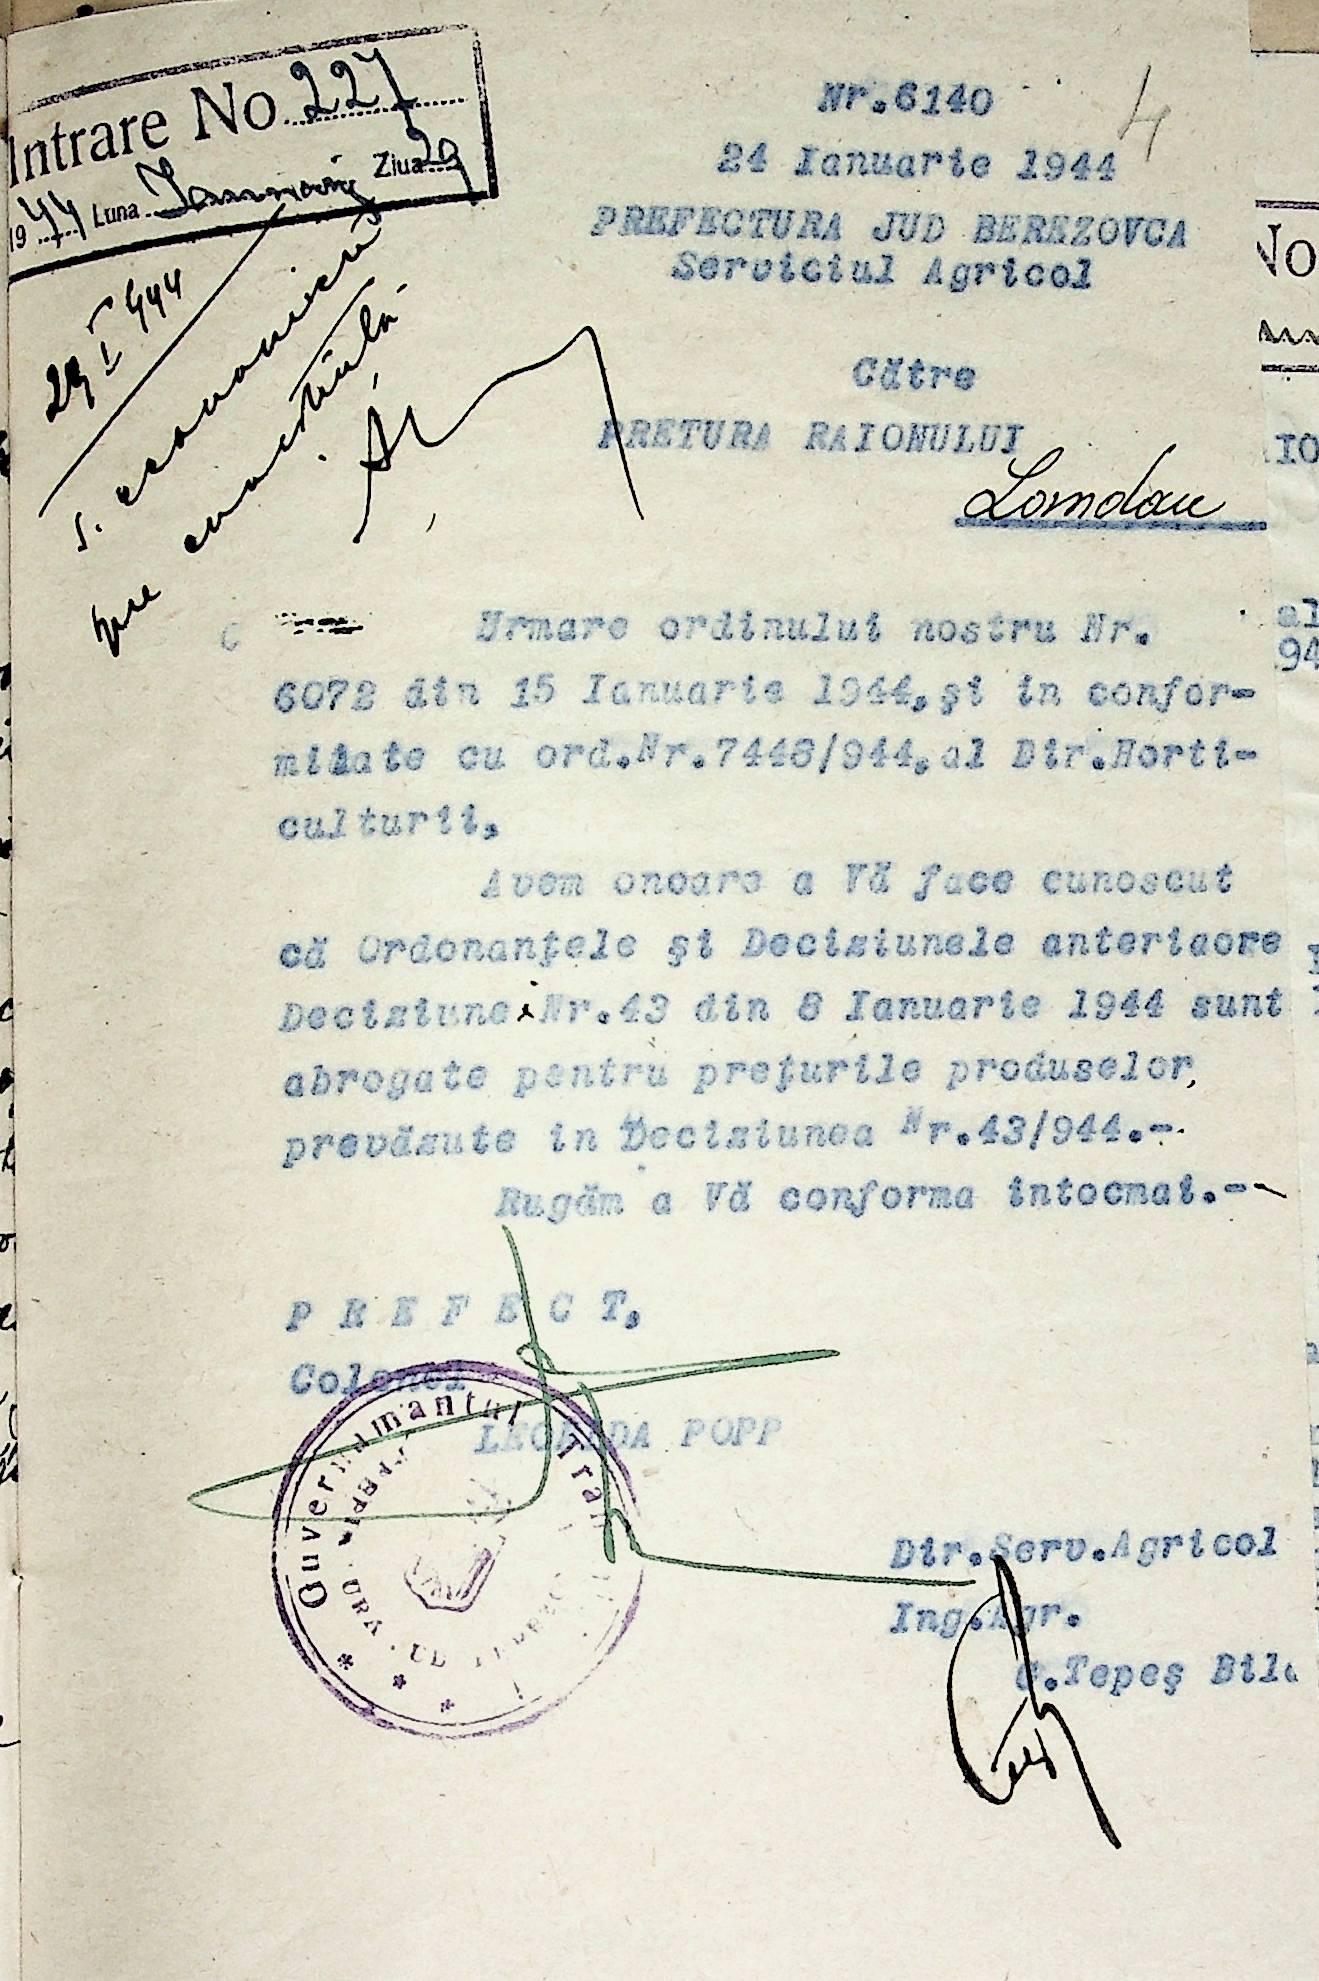 Intrare No. 227
1944 Luna Ianuarie Ziua 29
4
Nr.6140
24 Ianuarie 1944
PREFECTURA JUD BEREZOVCA
Serviciul Agricol
29 I 944
s. economic
pre
Către
PRETURA RAIONULUI
Landau
Urmare ordinului nostru Nr.
6072 din 15 Ianuarie 1944,şi in confor-
mitate cu ord.Nr.7448/944,al Dir.Horti-
culturii,
Avem onoare a Vă face cunoscut
că Ordonanţele şi Deciziunele anteriaore
Deciziunei Nr.43 din 8 Ianuarie 1944 sunt
abrogate pentru preţurile produselor,
prevăzute in Deciziunea Nr.43/944.-
Rugăm a Vă conforma intocmai.--
P R E F E C T,
Colonel
LEONIDA POPP
Guvernamantul Tran
Dir.Serv.Agricol
Ing.Agr.
G.Tepeş